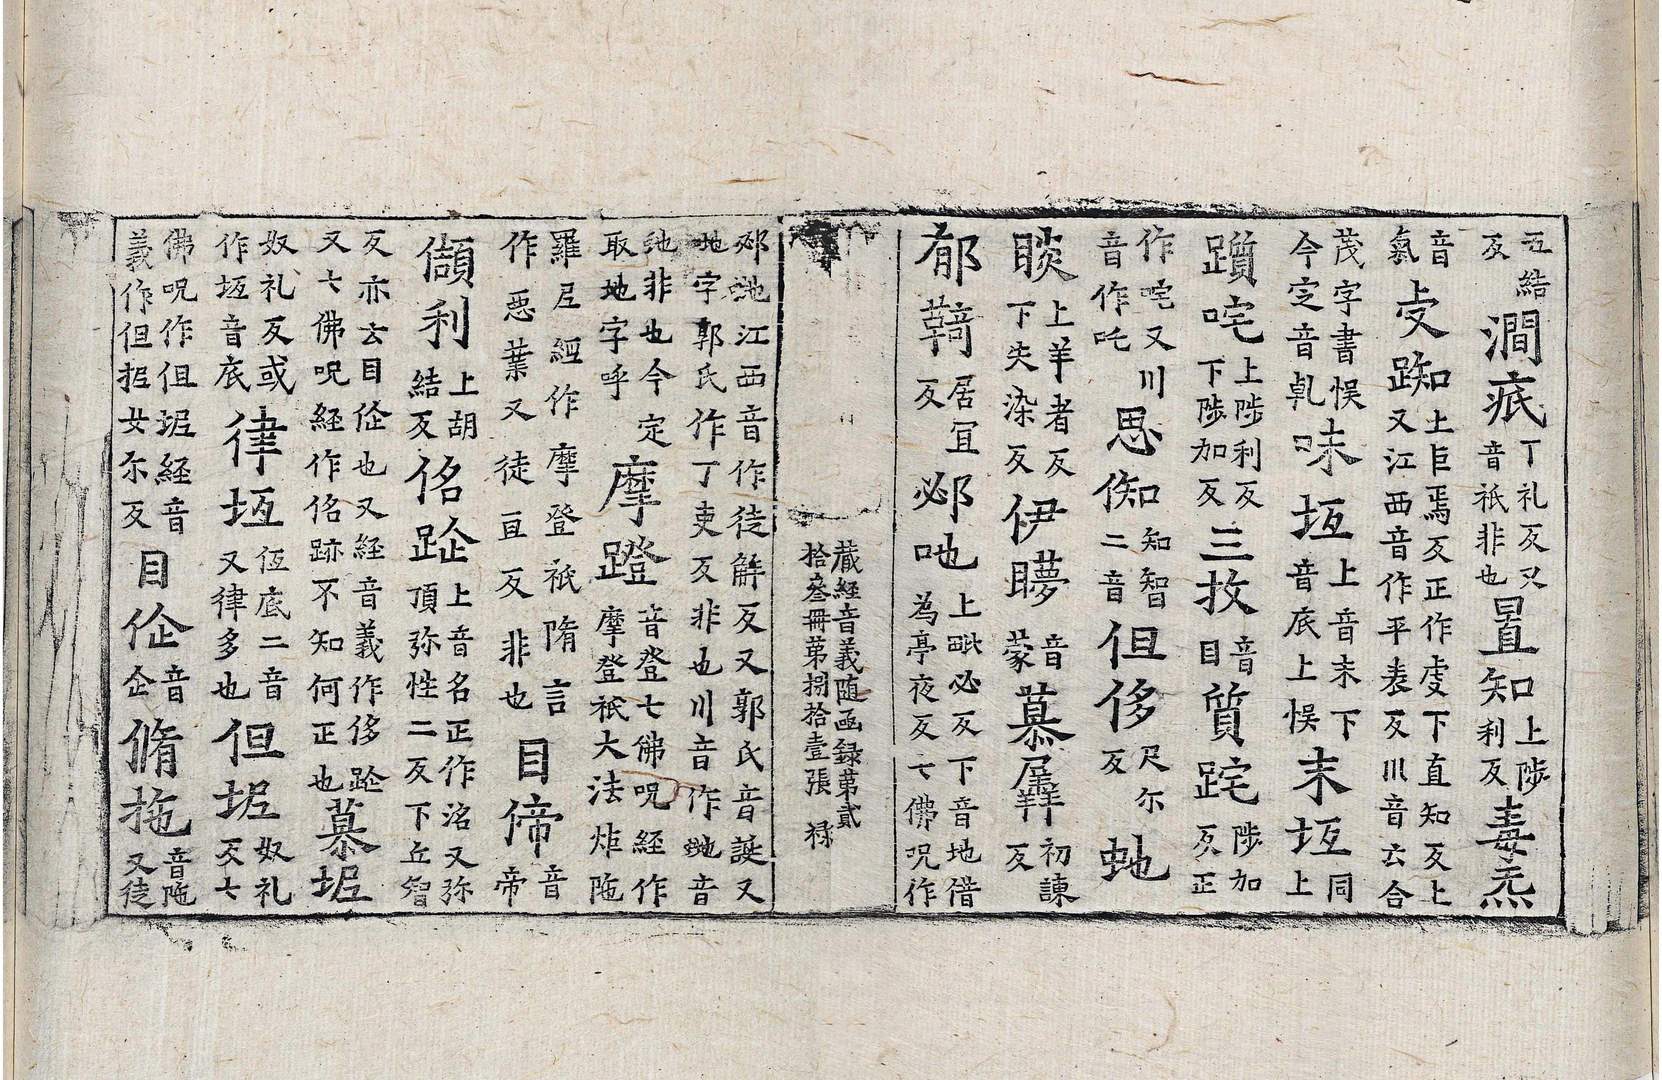 五結反澗疷丁礼反又音祇非也量知上陟知利反毒炁
音氣㞰踟上巨焉反正作虔下直知反上又江西音作平表反川音云合
茂字書悮今定音乹味坘上音末下音底上悮末坘同上
躓咤上陟利反下陟加反三抆音目質跎陟加反正
作咤又川音作吒思𢛁知智二音但侈尺尒反虵
睒上羊者反下失染反伊矃音蒙慕羼初諫反
郁䩭居冝反邲吔上毗必反下音地借為亭夜反七佛呪作
藏經音義随函録第貳拾叄冊第捌拾壹張 禄
邲吔江西音作徒解反又郭氏音誕又吔字郭氏作丁吏反非也川音作吔音
紽非也今定取地字呼摩蹬音登七佛呪經作摩登祇大法炬陁
羅尼經作摩登祇隋言作惡業又徒亘反非也目𠌪音帝
𠐊利上胡結反佲跐上音名正作洺又弥頂弥性二反下丘智
反亦云目㑀也又經音義作侈跐又七佛呪經作佲跡不知何正也慕坭
奴礼反或作坘音底律坘伍底二音又律多也但坭奴礼反七
佛呪作但坭經音義作但抳女尒反目㑀音企脩拖音陁又徒